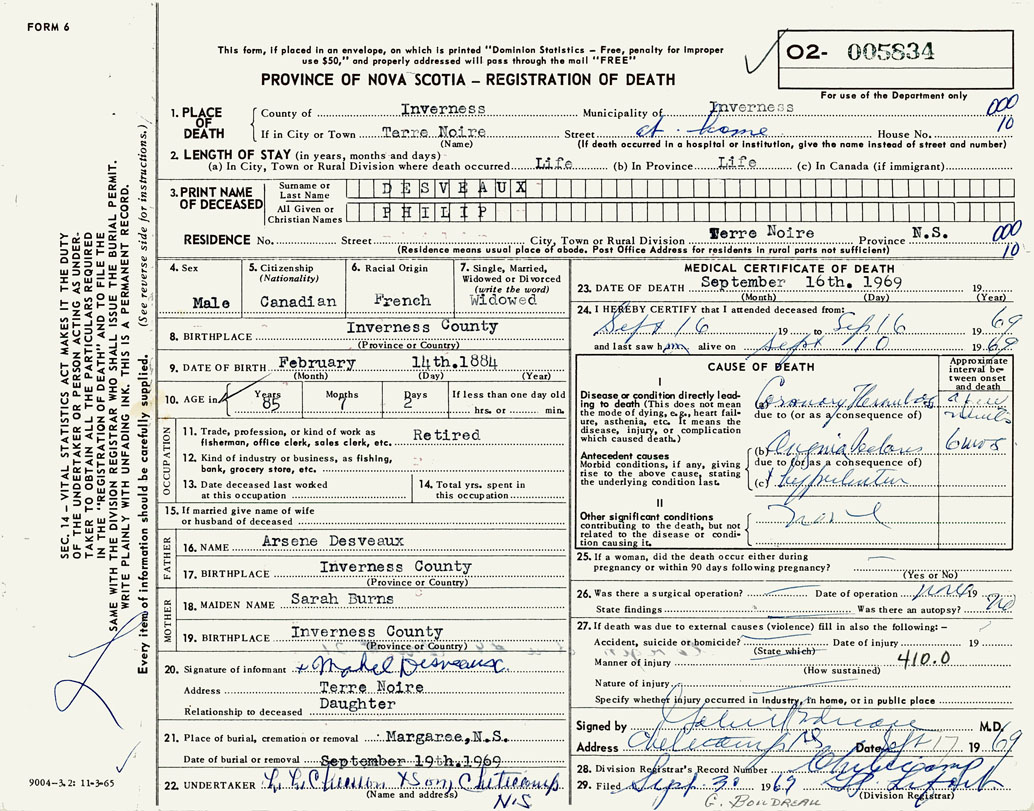 FORM 6
This form, if placed in an envelope, on which is printed "Dominion Statistics – Free, penalty for improper
use $50," and properly addressed will pass through the mail "FREE"
O2- 005834
PROVINCE OF NOVA SCOTIA – REGISTRATION OF DEATH
For use of the Department only
1. PLACE OF DEATH County of Inverness Municipality of Inverness 000
If in City or Town Terre Noire Street at home House No. 10
(Name) (If death occurred in a hospital or institution, give the name instead of street and number)
2. LENGTH OF STAY (in years, months and days)
(a) In City, Town or Rural Division where death occurred Life (b) In Province Life (c) In Canada (if immigrant)
3. PRINT NAME OF DECEASED Surname or Last Name DESVEAUX
All Given or Christian Names PHILIP
RESIDENCE No. Street City, Town or Rural Division Terre Noire Province N.S. 000
(Residence means usual place of abode. Post Office Address for residents in rural parts not sufficient) 10
4. Sex Male
5. Citizenship (Nationality) Canadian
6. Racial Origin French
7. Single, Married, Widowed or Divorced (write the word) Widowed
8. BIRTHPLACE Inverness County
(Province or Country)
9. DATE OF BIRTH February 14th.1884
(Month) (Day) (Year)
10. AGE in Years 85 Months 7 Days 2 If less than one day old hrs. or min.
OCCUPATION
11. Trade, profession, or kind of work as Retired
fisherman, office clerk, sales clerk, etc.
12. Kind of industry or business, as fishing,
bank, grocery store, etc.
13. Date deceased last worked at this occupation
14. Total yrs. spent in this occupation
15. If married give name of wife
or husband of deceased
FATHER
16. NAME Arsene Desveaux
17. BIRTHPLACE Inverness County
(Province or Country)
MOTHER
18. MAIDEN NAME Sarah Burns
19. BIRTHPLACE Inverness County
(Province or Country)
20. Signature of informant + Mabel Desveaux
Address Terre Noire
Relationship to deceased Daughter
21. Place of burial, cremation or removal Margaree,N.S.
Date of burial or removal September 19th.1969
22. UNDERTAKER & Son, Cheticamp
(Name and address) N.S
MEDICAL CERTIFICATE OF DEATH
23. DATE OF DEATH September 16th. 1969 19
(Month) (Day) (Year)
24. I HEREBY CERTIFY that I attended deceased from:
Sept 16 19 to Sep 16 69
and last saw him alive on Sept 10 1969
CAUSE OF DEATH
Approximate interval between onset and death
I
Disease or condition directly leading to death (This does not mean the mode of dying, e.g., heart failure, asthenia, etc. It means the disease, injury, or complication which caused death.)
(a) Coronary
due to (or as a consequence of)
Antecedent causes
Morbid conditions, if any, giving rise to the above cause, stating the underlying condition last.
(b) Angina 6 mos
due to (or as a consequence of)
(c) Hypertension
II
Other significant conditions
contributing to the death, but not related to the disease or condition causing it.
25. If a woman, did the death occur either during
pregnancy or within 90 days following pregnancy?
(Yes or No)
26. Was there a surgical operation? Date of operation 19
State findings Was there an autopsy? no
27. If death was due to external causes (violence) fill in also the following:–
Accident, suicide or homicide? Date of injury 19
(State which)
Manner of injury 410.0
(How sustained)
Nature of injury
Specify whether injury occurred in Industry, in home, or in public place
Signed by M.D.
Address Cheticamp NS Date Sept 17 1969
28. Division Registrar's Record Number Cheticamp
29. Filed Sept 30 1969
(Division Registrar)
G. BOUDREAU
SEC. 14 – VITAL STATISTICS ACT MAKES IT THE DUTY
OF THE UNDERTAKER OR PERSON ACTING AS UNDER-
TAKER TO OBTAIN ALL THE PARTICULARS REQUIRED
IN THE "REGISTRATION OF DEATH" AND TO FILE THE
SAME WITH THE DIVISION REGISTRAR WHO SHALL ISSUE THE BURIAL PERMIT.
WRITE PLAINLY WITH UNFADING INK. THIS IS A PERMANENT RECORD.
Every item of information should be carefully supplied. (See reverse side for instructions.)
9004-3.2: 11-3-65